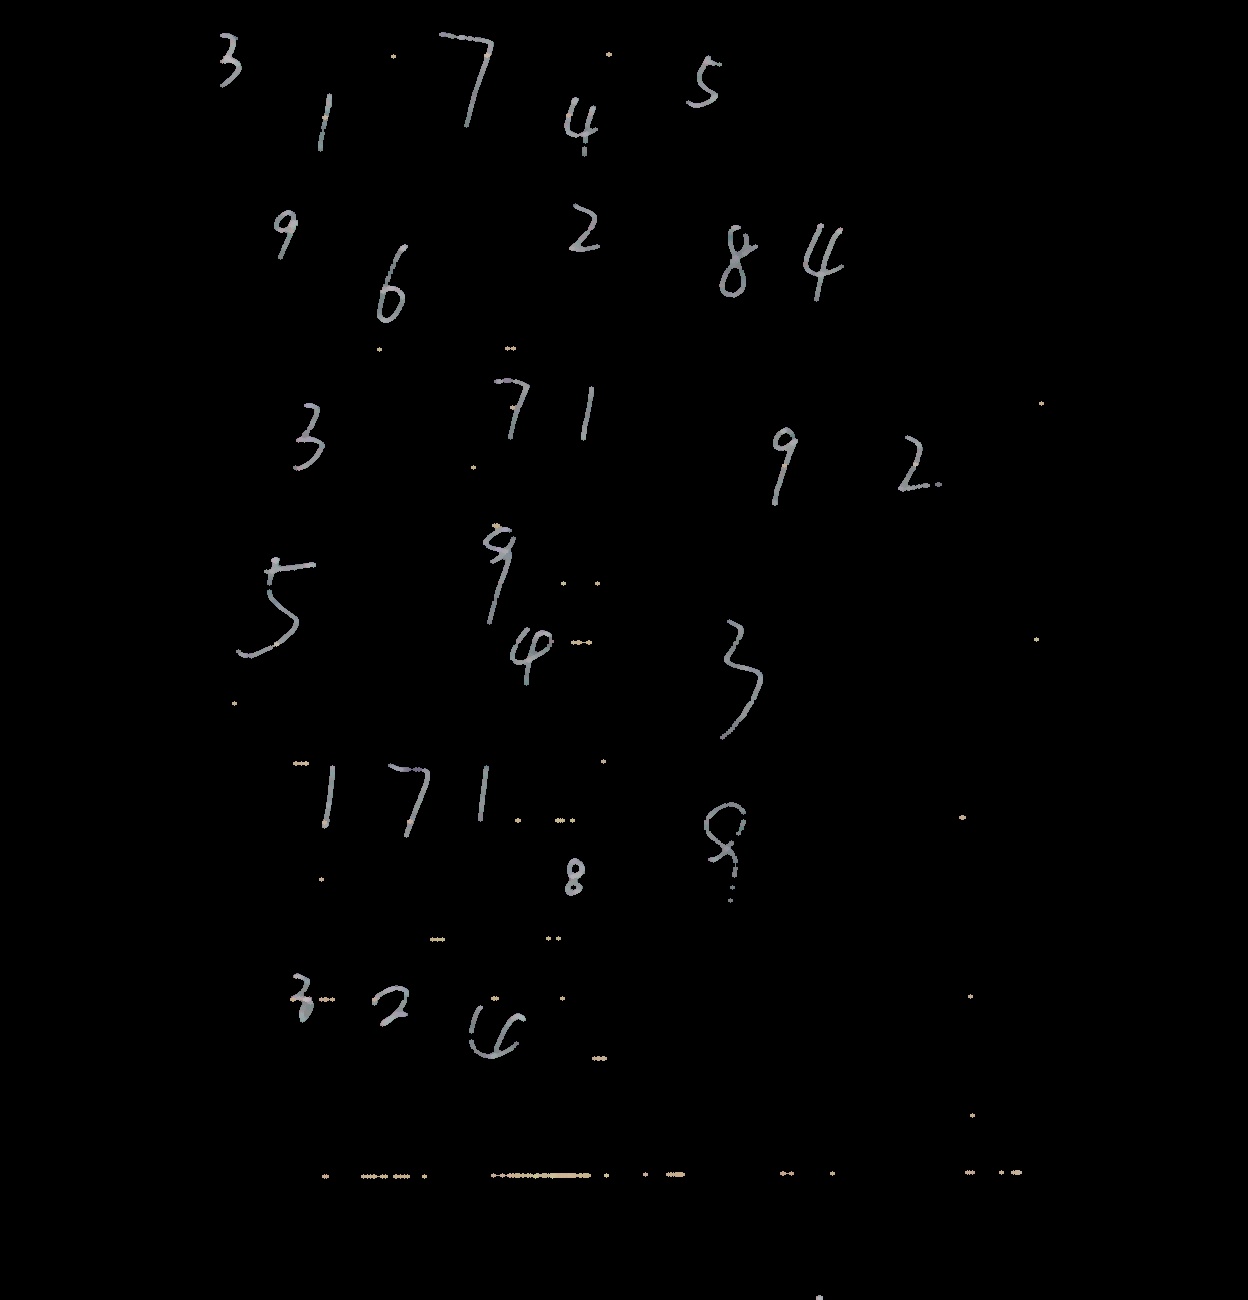 3 1 7 4 5
9 6 2 8 4
3 7 1 9 2
5 9 4 3
1 7 1 8 9
3 2 4